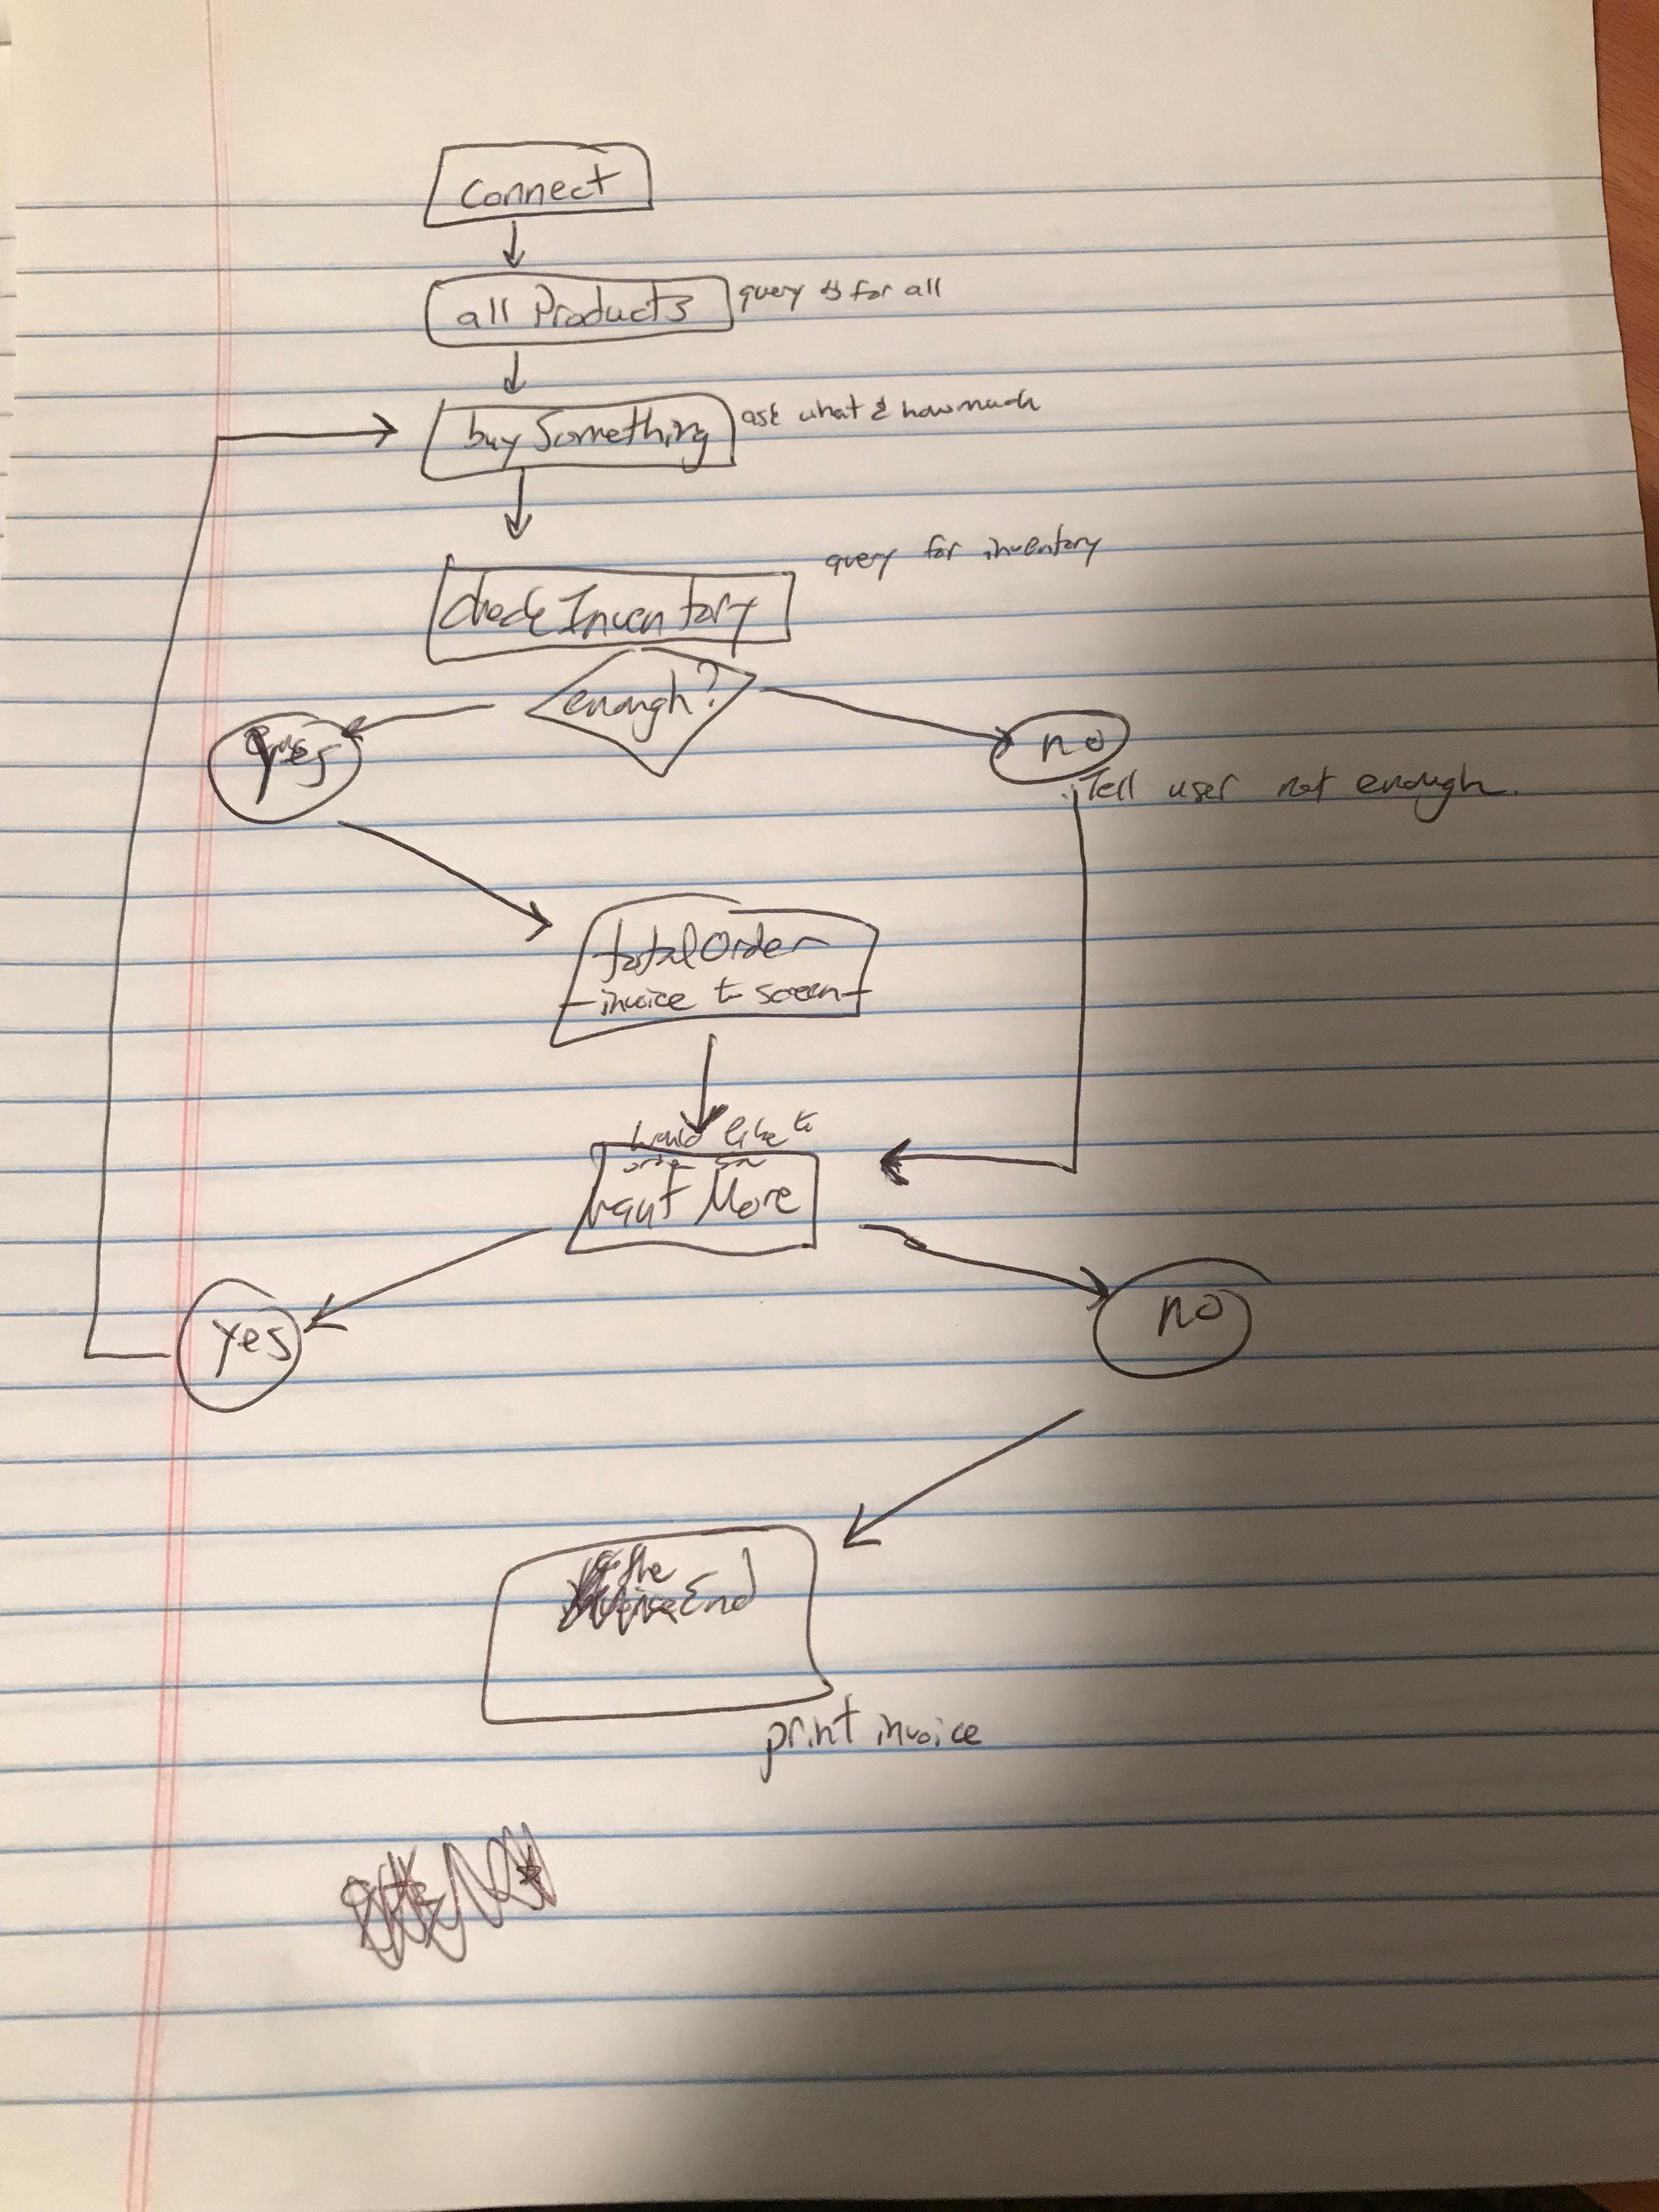 connect
all Products
query for all
buySomething
ask what & how much
checkInventory
query for inventory
enough?
yes
no
Tell user not enough.
totalOrder
invoice to screen
would like to
order
want More
yes
no
the
End
print invoice